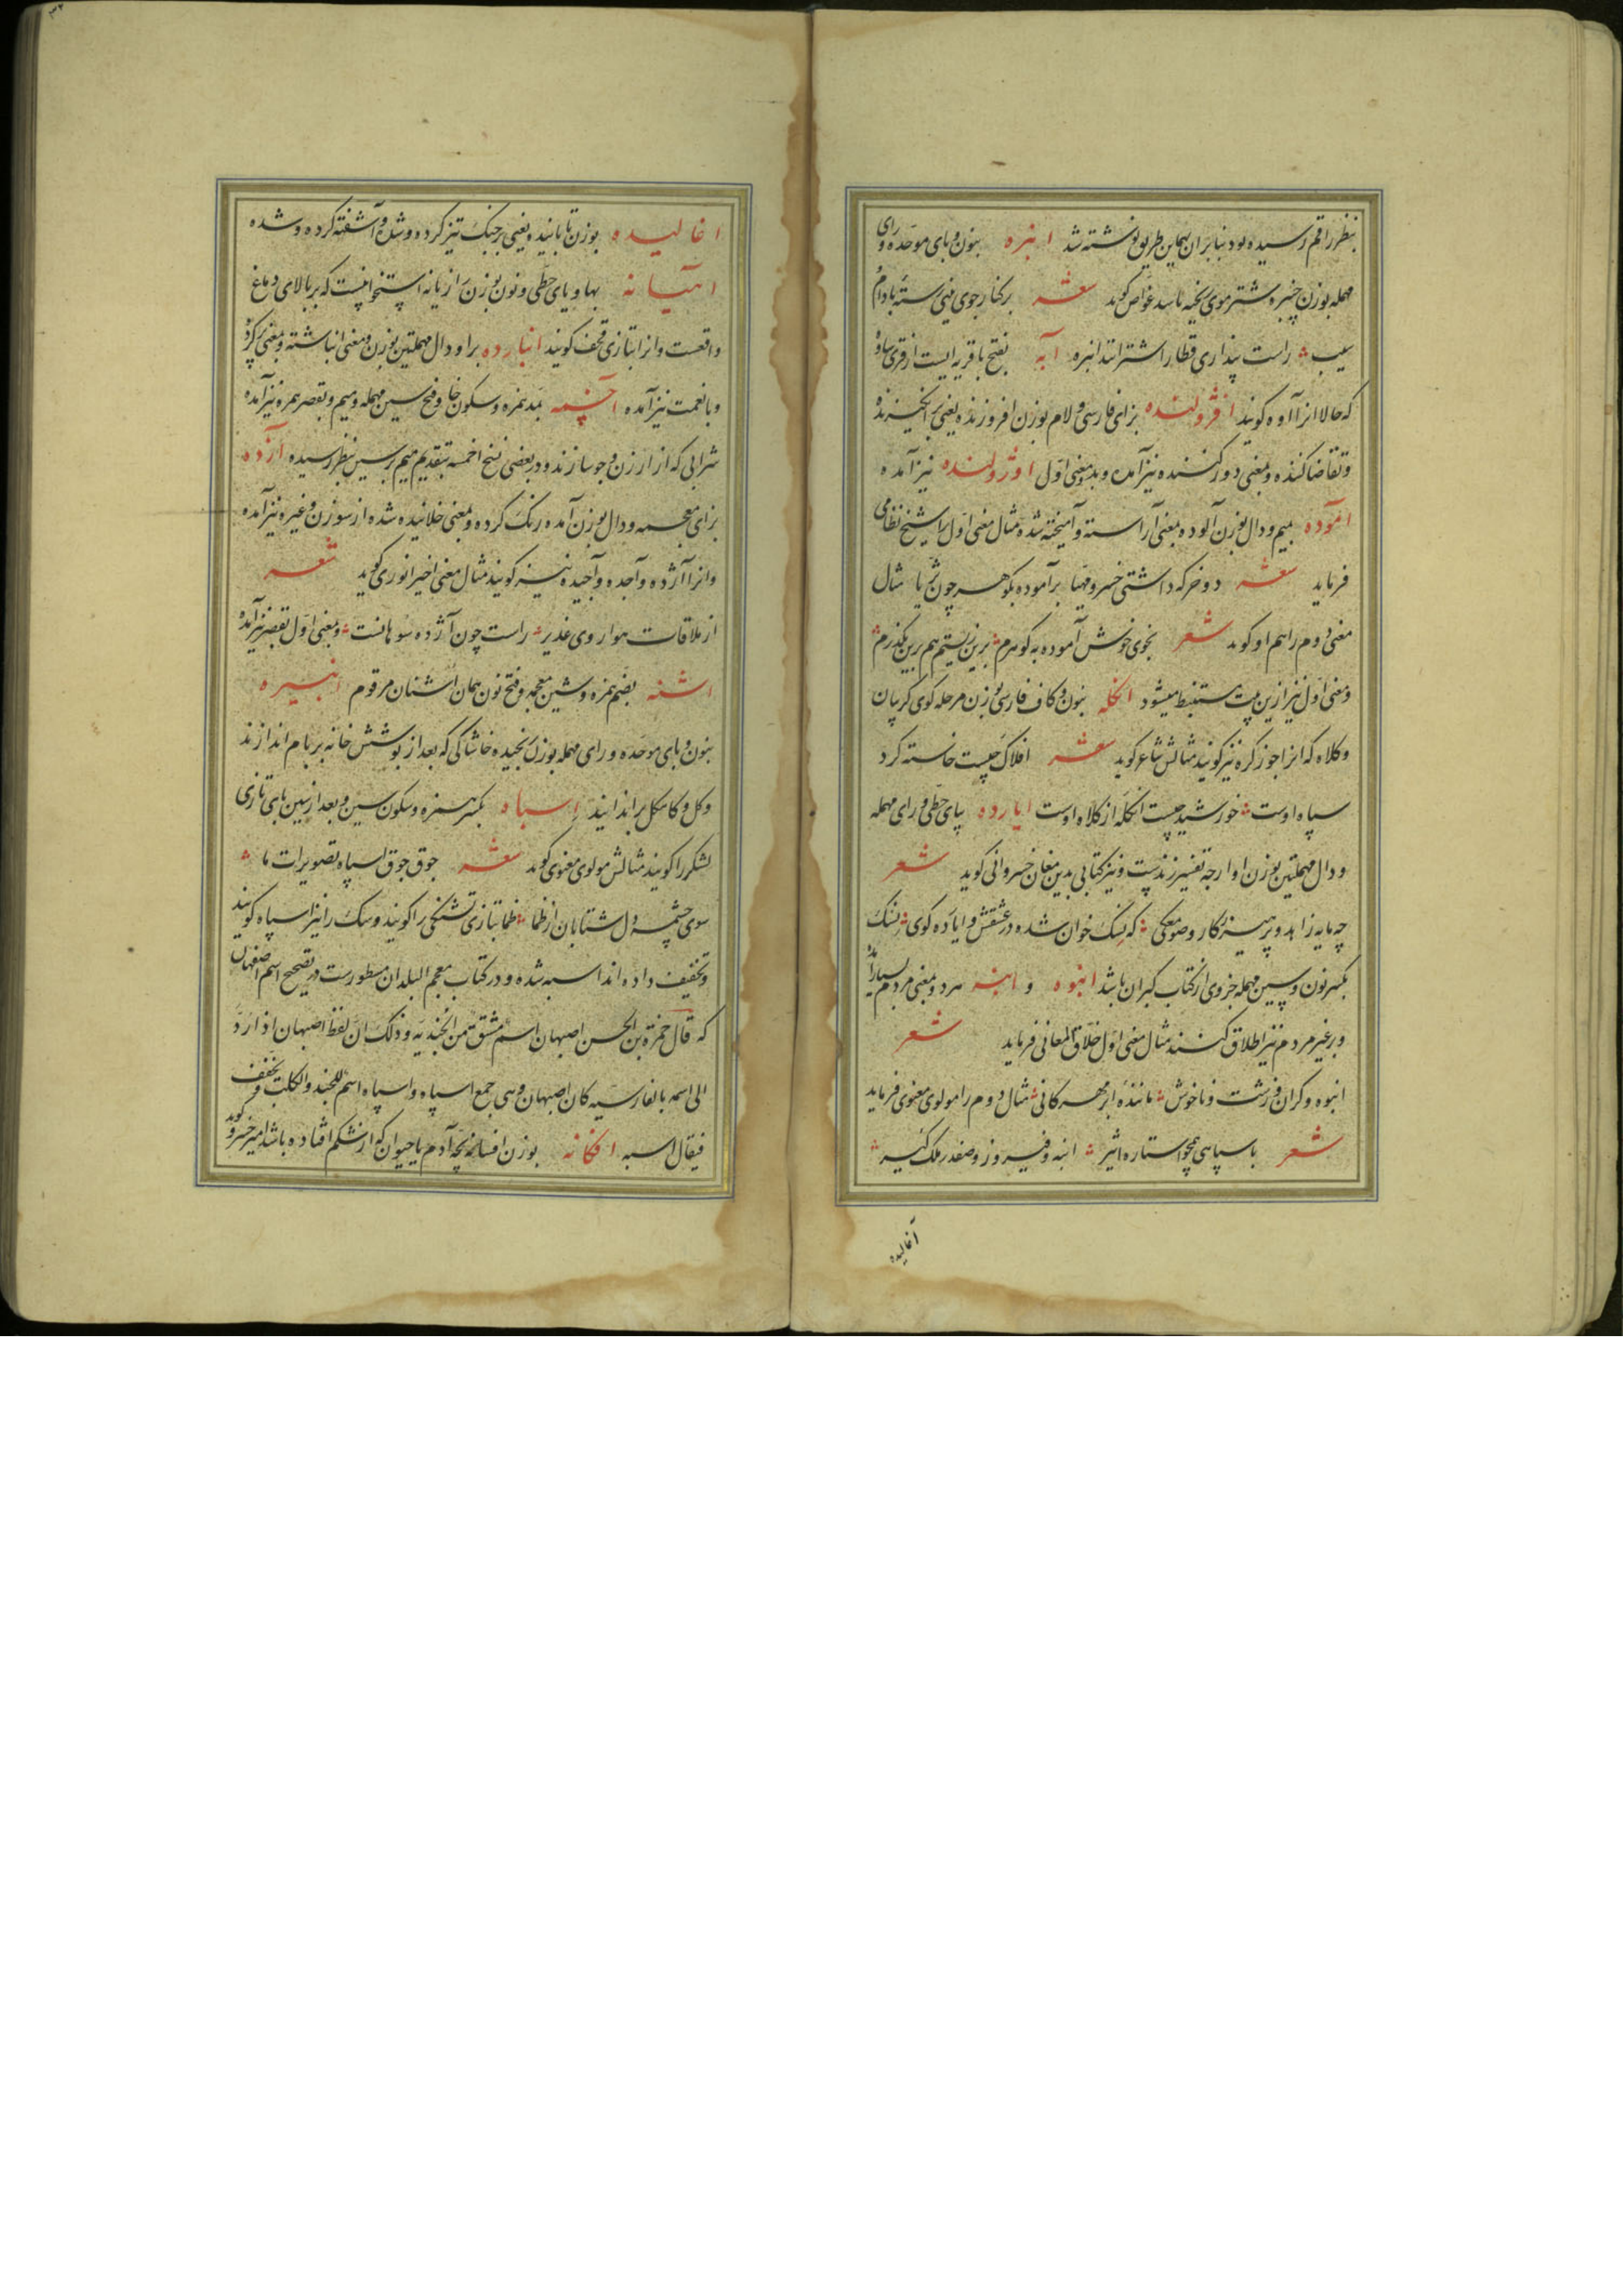 بنظر راقم رسیده بود بنابران بهماین طریق نوشته شد انبره بنون و بای موحده و رای
مهمله بوزن چنبره شتر موی ریخته باشد غواص کوید شعر برکنار جوی بینی رسته بادام و
سیب راست پنداری قطار اشترانند انبره آبه بفتح با قریه ایست از قرای ساوه
که حالا انرا آوه کویند افژولنده بزای فارسی و لام بوزن افروزنده یعنی برانکیزنده
و تقاضا کننده و بمعنی دور کننده نیز آمده و بدو معنی اول اوژولنده نیز آمده
آموده بمیم و دال بوزن آلوده بمعنی آراسته و آمیخته شده مثال معنی اول را شیخ نظامی
فرماید شعر دو خرکه داشتی خسرو مهیا برآموده بکوهر چون ثریا مثال
معنی دوم را هم او کوید شعر بخوی خوش آموده به کوهرم برین زیستم هم برین بکذرم
و معنی اول نیز ازین بیت مستنبط میشود انکله بنون و کاف فارسی بوزن مرحله کوی کریبان
و کلاه که انرا جوز کره نیز کویند مثالش شاعر کوید شعر افلاک چیست خاسته کرد
سپاه اوست خورشید چیست انکله از کلاه اوست ایارده بیای حطی و رای مهمله
و دال مهملتین بوزن اوارجه تفسیر زندست و نیز کتابی بدین مغان خسروانی کوید شعر
چه مایه زاهد و پرهیزکار و صومعکی که نسک خوان شده در عشقش و ایاره کوی نسک
بکسر نون و سین مهمله جزوی از کتاب کبران باشد انبوه و انبه مرد و بمعنی مردم بسیار آمده
و بر غیر مردم نیز اطلاق کنند مثال معنی اول خلاق المعانی فرماید شعر
انبوه و کران و زشت و ناخوش ماننده ابر مهرکانی مثال دوم را مولوی معنوی فرماید
شعر با سپاهی همچو استاره اثیر انبه و فیروز و صفدر ملک کیر
آغالیده
اغالیده بوزن تابانیده یعنی برجنک تیز کرده و شده و آشفته کرده و شده
انتیانه بها و یای حطی و نون بوزن رازیانه استخوانیست که بر بالای دماغ
واقعست و انرا بتازی قحف کویند انبارده برا و دال مهملتین بوزن و معنی انباشته و بمعنی پر کرد
و با نعمت نیز آمده آخسمه بمد همزه و سکون خا و فتح سین مهمله و میم و بقصر همزه نیز آمده
شرابی که از ارزن و جو سازند و در بعضی نسخ اخمسه بتقدیم میم بر سین بنظر رسیده آزده
بزای معجمه و دال بوزن آمده رنک کرده و بمعنی خلانیده شده از سوزن و غیره نیز آمده
و انرا آژده و آجده و آجیده نیز کویند مثال معنی اخیر انوری کوید شعر
از ملاقات هوا روی غدیر راست چون آژده سوهانست و بمعنی اول بقصر نیز آمده
اشنه بضم همزه و شین معجمه و فتح نون همان اشنان مرقوم انبیره
بنون و بای موحده و رای مهمله بوزن رنجیده خاشاکی که بعد از پوشش خانه بر بام اندازند
و کل و کاهکل بر اندایند اسباه بکسر همزه و سکون سین و بعد از سین بای تازی
لشکر را کویند مثالش مولوی معنوی کوید شعر جوق جوق اسپاه تصویرات ما
سوی چشمه دل شتابان از ظما ظما بتازی تشنکی را کویند و سک را نیز اسپاه کویند
و تخفیف داده اند اسبه شده و در کتاب معجم البلدان مسطورست در تصحیح اسم اصفهان
که قال حمزة بن الحسن اصبهان اسم مشتق من الجندیه و ذلک ان لفظ اصبهان اذا رد
الی اسمه بالفارسیه کان اصبهان و هی جمع اسپاه و اسپاه اسم للجند و الکلب و تخفف
فیقال اسبه افکانه بوزن افسانه بچه آدم یا حیوان که از شکم افتاده باشد امیر خسرو کوید